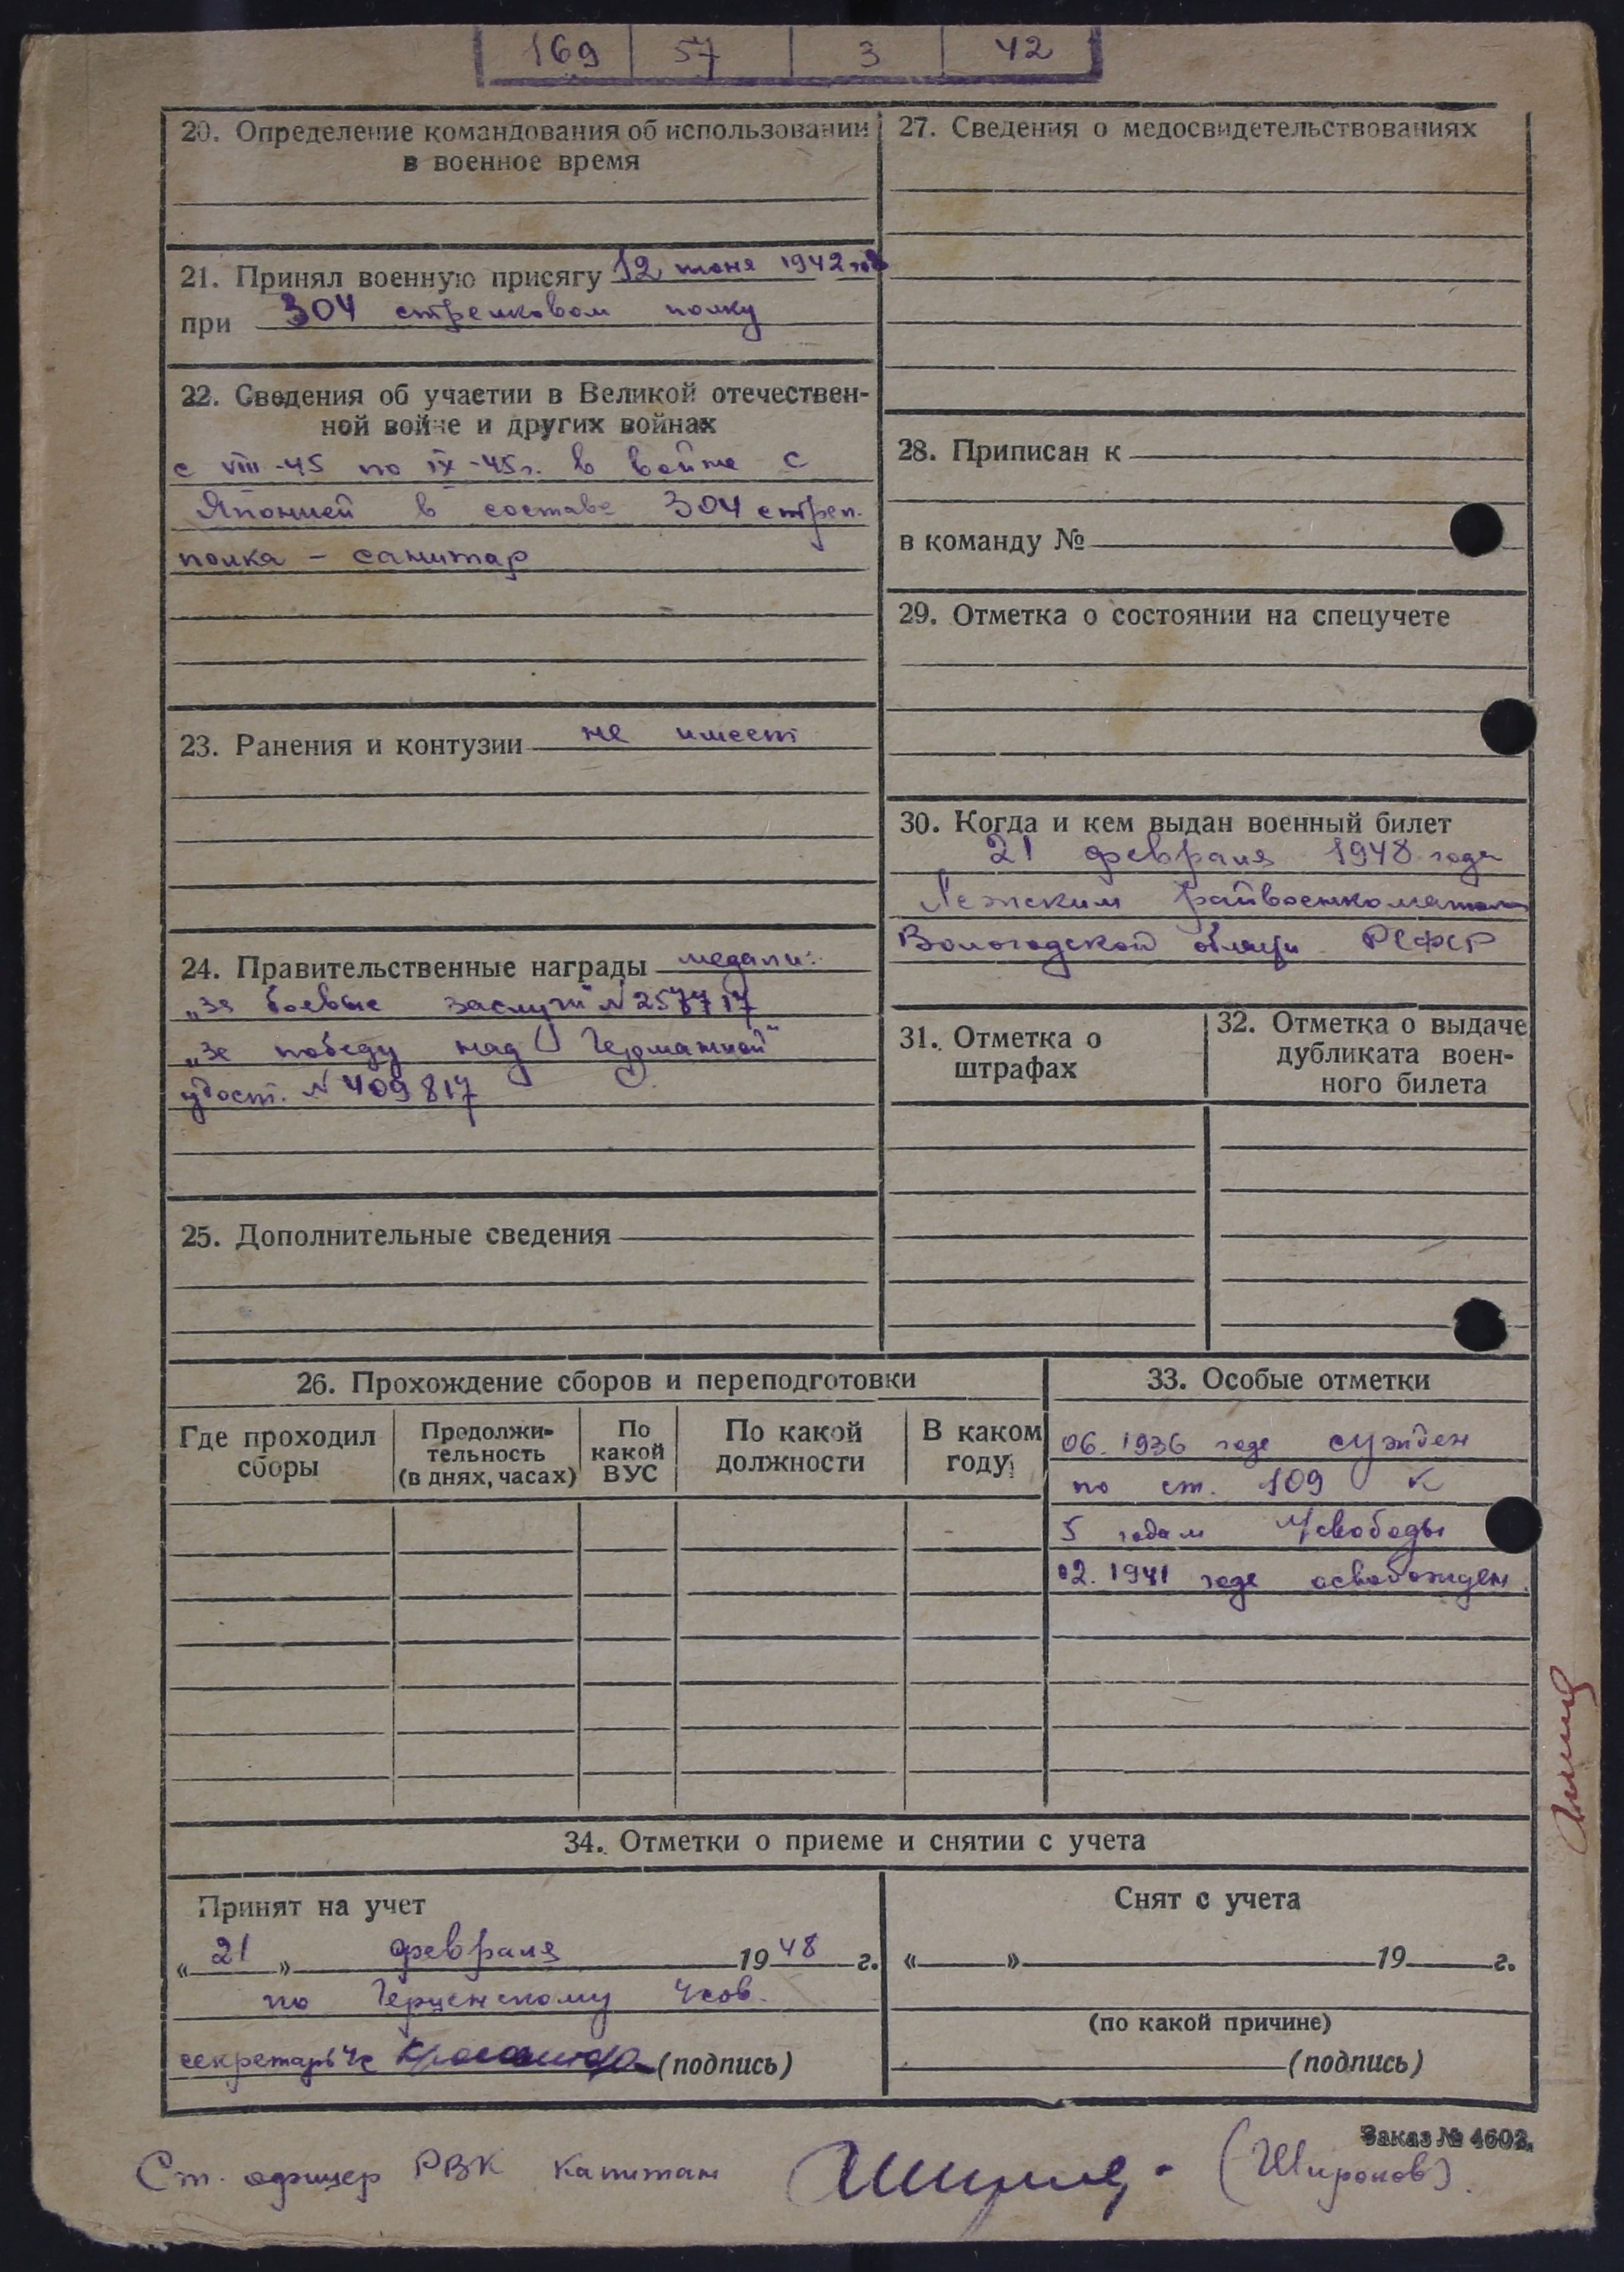 169 57 3 42
20. Определение командования об использовании
в военное время
21. Принял военную присягу 12 июня 1942 год
при 304 стрелковом полку
22. Сведения об участии в Великой отечествен-
ной войне и других войнах
с VIII-45 по IX-45г. в войне с
Японией в составе 304 стрел.
полка – санитар
23. Ранения и контузии не имеет
24. Правительственные награды медали:
„за боевые заслуги" №
„за победу над Германией"
удост. № 409817
25. Дополнительные сведения
27. Сведения о медосвидетельствованиях
28. Приписан к
в команду №
29. Отметка о состоянии на спецучете
30. Когда и кем выдан военный билет
21 февраля 1948 года
Лежским райвоенкоматом
Вологодской РСФСР
31. Отметка о
штрафах
32. Отметка о выдаче
дубликата воен-
ного билета
26. Прохождение сборов и переподготовки
Где проходил
сборы
Продолжи-
тельность
(в днях, часах)
По
какой
ВУС
По какой
должности
В каком
году
33. Особые отметки
06. 1936 годе сужден
по ст. 109 к
5 годам л/свободы
02. 1941 годе освобожден.
34. Отметки о приеме и снятии с учета
Принят на учет
« 21 » февраля 1948 г.
по Герценскому
секретарь (подпись)
Снят с учета
« » 19 г.
(по какой причине)
(подпись)
Заказ № 4602.
Ст. офицер РВК капитан (Широков).